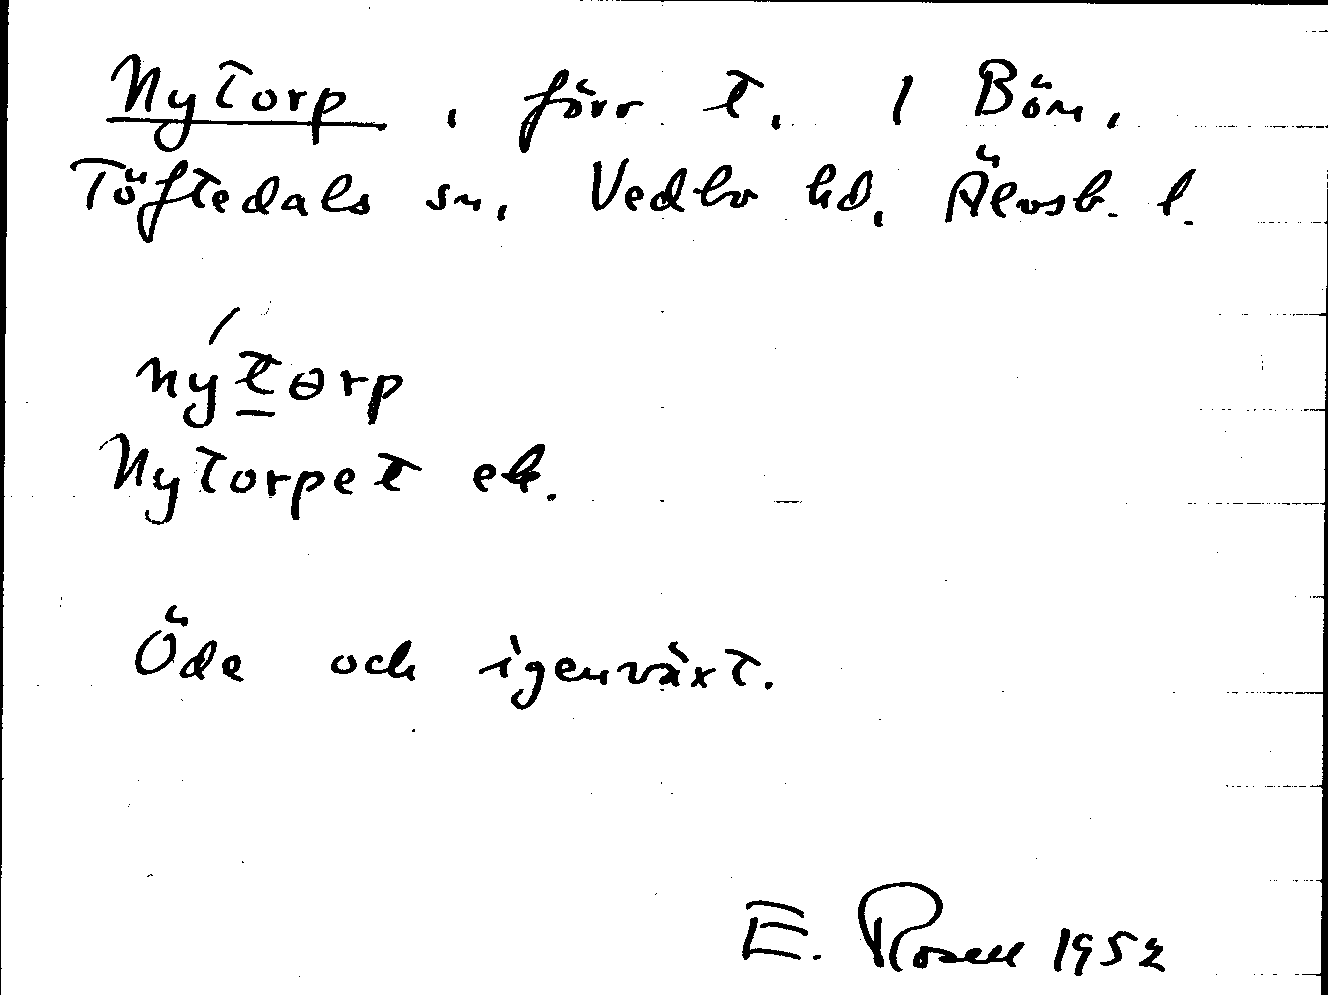 Nytorp, förr t. / Bön,
Töftedals sn, Vedbo hd, Älvsb. l.
nýtɵrp
Nytorpet ek.
Öde och igenväxt.
E. Rosell 1952